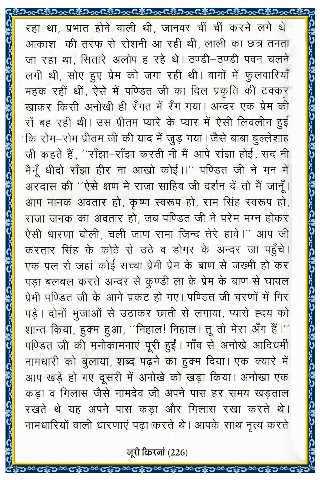 रहा था, प्रभात होने वाली थी, जानवर चीं चीं करने लगे थे
आकाश की तरफ से रोशनी आ रही थी, लाली का छत्र तनता
जा रहा था, सितारे अलोप ह रहे थे। ठण्डी-ठण्डी पवन चलने
लगी थी, सोए हुए प्रेम को जगा रही थी। बागों में फुलवारियाँ
महक रहीं थीं, ऐसे में पण्डित जी का दिल प्रकृति की टक्कर
खाकर किसी अनोखी ही रँगत में रँग गया। अन्दर एक प्रेम की
रौं बह रही थी। उस प्रीतम प्यारे के प्यार में ऐसी लिवलीन हुई
कि रोम-रोम प्रीतम जी की याद में जुड़ गया। जैसे बाबा बुल्लेशाह
जी कहते हैं, ''राँझा-राँझा करती नी मैं आपे रांझा होई, सद नी
मैनूँ धीदो राँझा हीर ना आखो कोई।।'' पण्डित जी ने गन में
अरदास की ''ऐसे क्षण मे राजा साहिब जी दर्शन दें तो मैं जानूँ।
आप नानक अवतार हो, कृष्ण स्वरूप हो, राम सिंह स्वरूप हो,
राजा जनक का अवतार हो, जब पण्डित जी ने परेम मग्न होकर
ऐसी धारणा बोली, चली जाण रामा जिन्द तेरे हावे।'' आप जी
करतार सिंह के कोठे से उठे व डोगर के अन्दर जा पहुँचे।
एक पल से जहां कोई सच्चा प्रेमी प्रेम के बाण से जख्मी हो कर
पड़ा बलवल करते अन्दर से कुण्डी ला के प्रेम के बाण से घायल
प्रेमी पण्डित जी के आगे प्रकट हो गए। पण्डित जी चरणों में गिर
पड़े। दोनों भुजाओं से उठाकर छाती से लगाया, प्यासे हृदय को
शान्त किया, हुक्म हुआ, ''निहाल! निहाल! तू तो मेरा अँग हैं।''
पण्डित जी की मनोकामनाएं पूरी हुईं। गाँव से अनोखे आदिधर्मी
नामधारी को बुलाया, शब्द पढ़ने का हुक्म दिया। एक क्यारे में
आप खड़े हो गए दूसरी में अनोखे को खड़ा किया। अनोखा एक
कड़ा व गिलास जैसे नामदेव जी अपने पास हर समय खड़ताल
रखते थे वह अपने पास कड़ा और गिलास रखा करते थे।
नामधारियों वाली धारणाएं पढ़ा करते थे। आपके साथ नृत्य करते
नूरी किरनां (226)